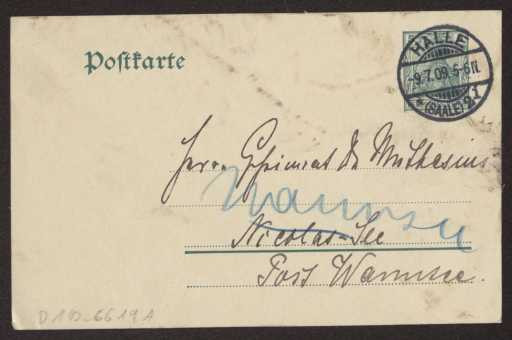 Postkarte
HALLE
-9.7.09.5-6N.
* (SAALE) 2 f
Herrn Geheimrat Dr Muthesius
Wannsee
Nicolas-See
Post Wannsee.
D 1D-6619A